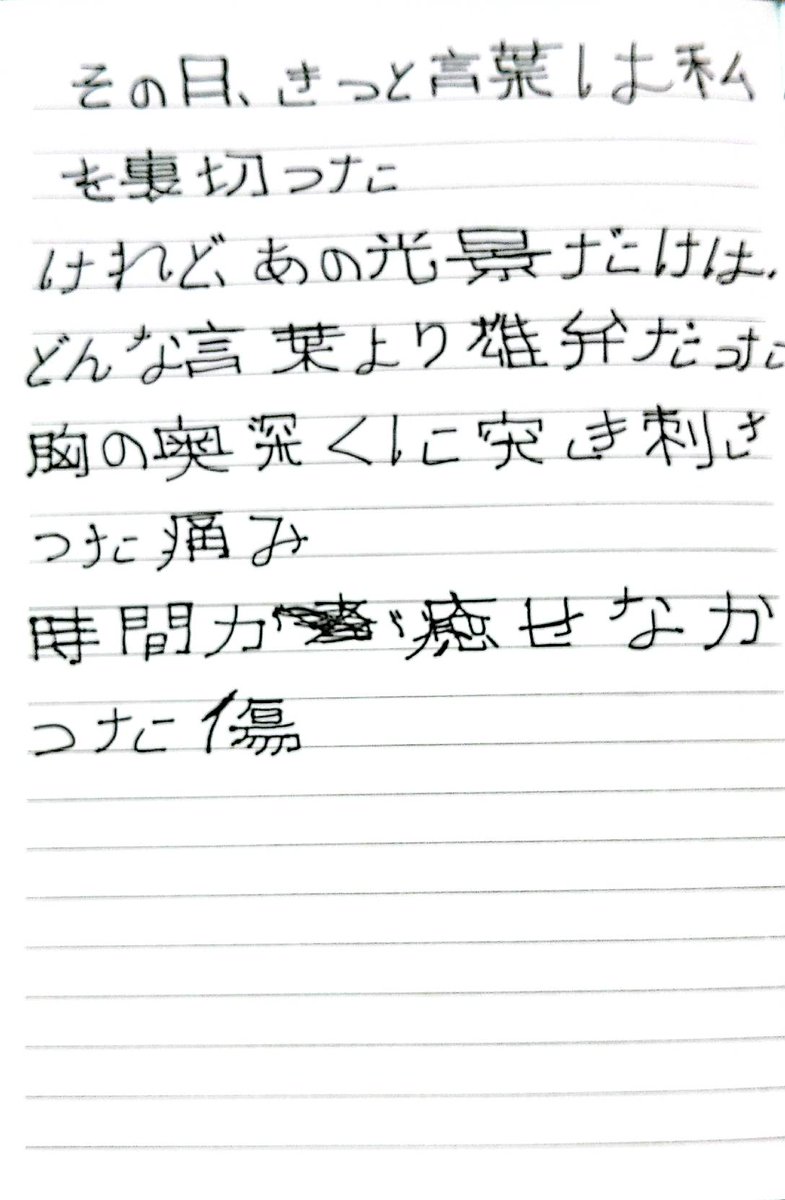 その日、きっと言葉は私
を裏切った
けれど、あの光景だけは、
どんな言葉より雄弁だった
胸の奥深くに突き刺さ
った痛み
時間が癒せなか
った傷